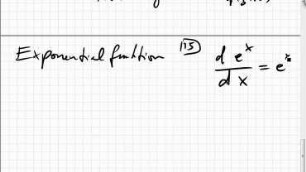 Exponential funktion (15) d e^x / d x = e^x